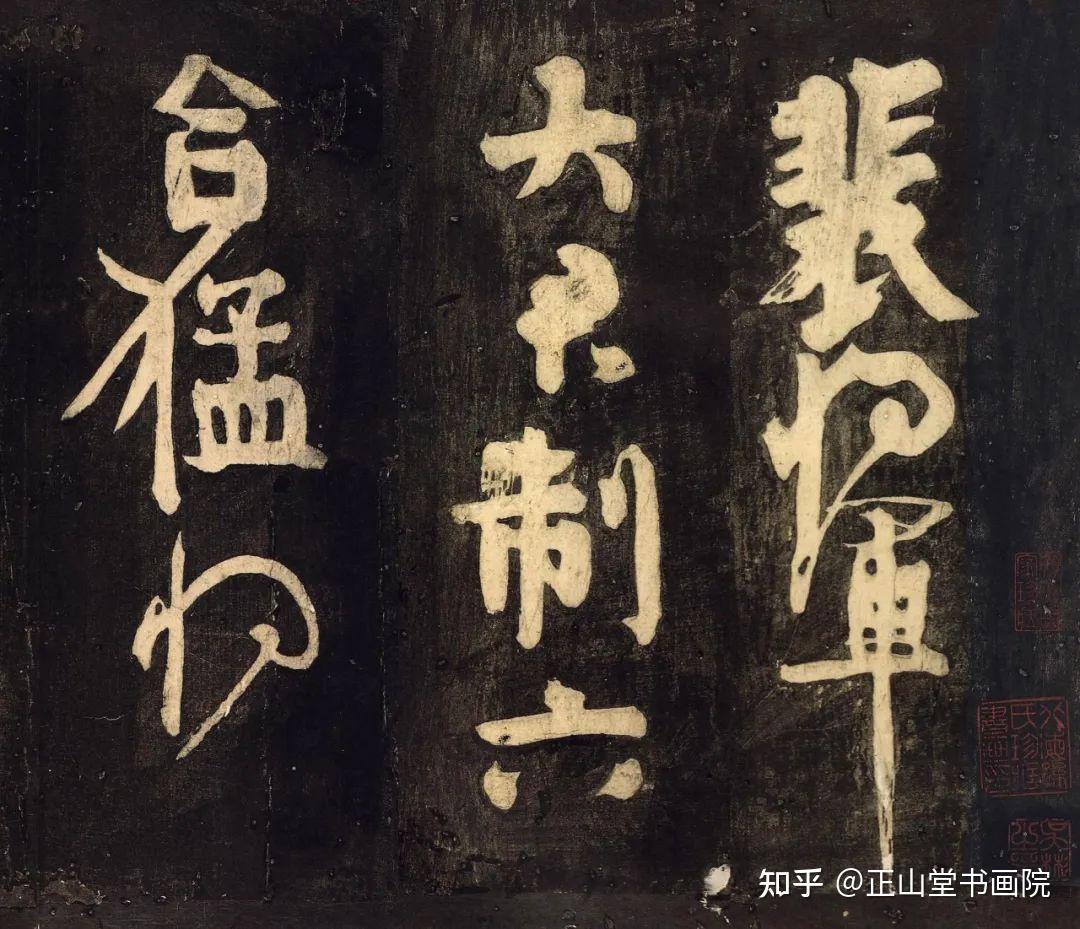 裴將軍
大君制六
合猛將
知乎 @正山堂书画院